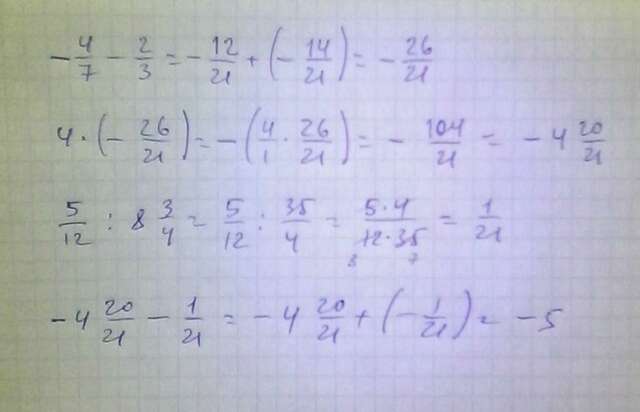 -4/7 - 2/3 = -12/21 + (-14/21) = -26/21
4 · (-26/21) = -(4/1 · 26/21) = -104/21 = -4 20/21
5/12 : 8 3/4 = 5/12 : 35/4 = 5·4/12·35 = 1/21
8 7
-4 20/21 - 1/21 = -4 20/21 + (-1/21) = -5